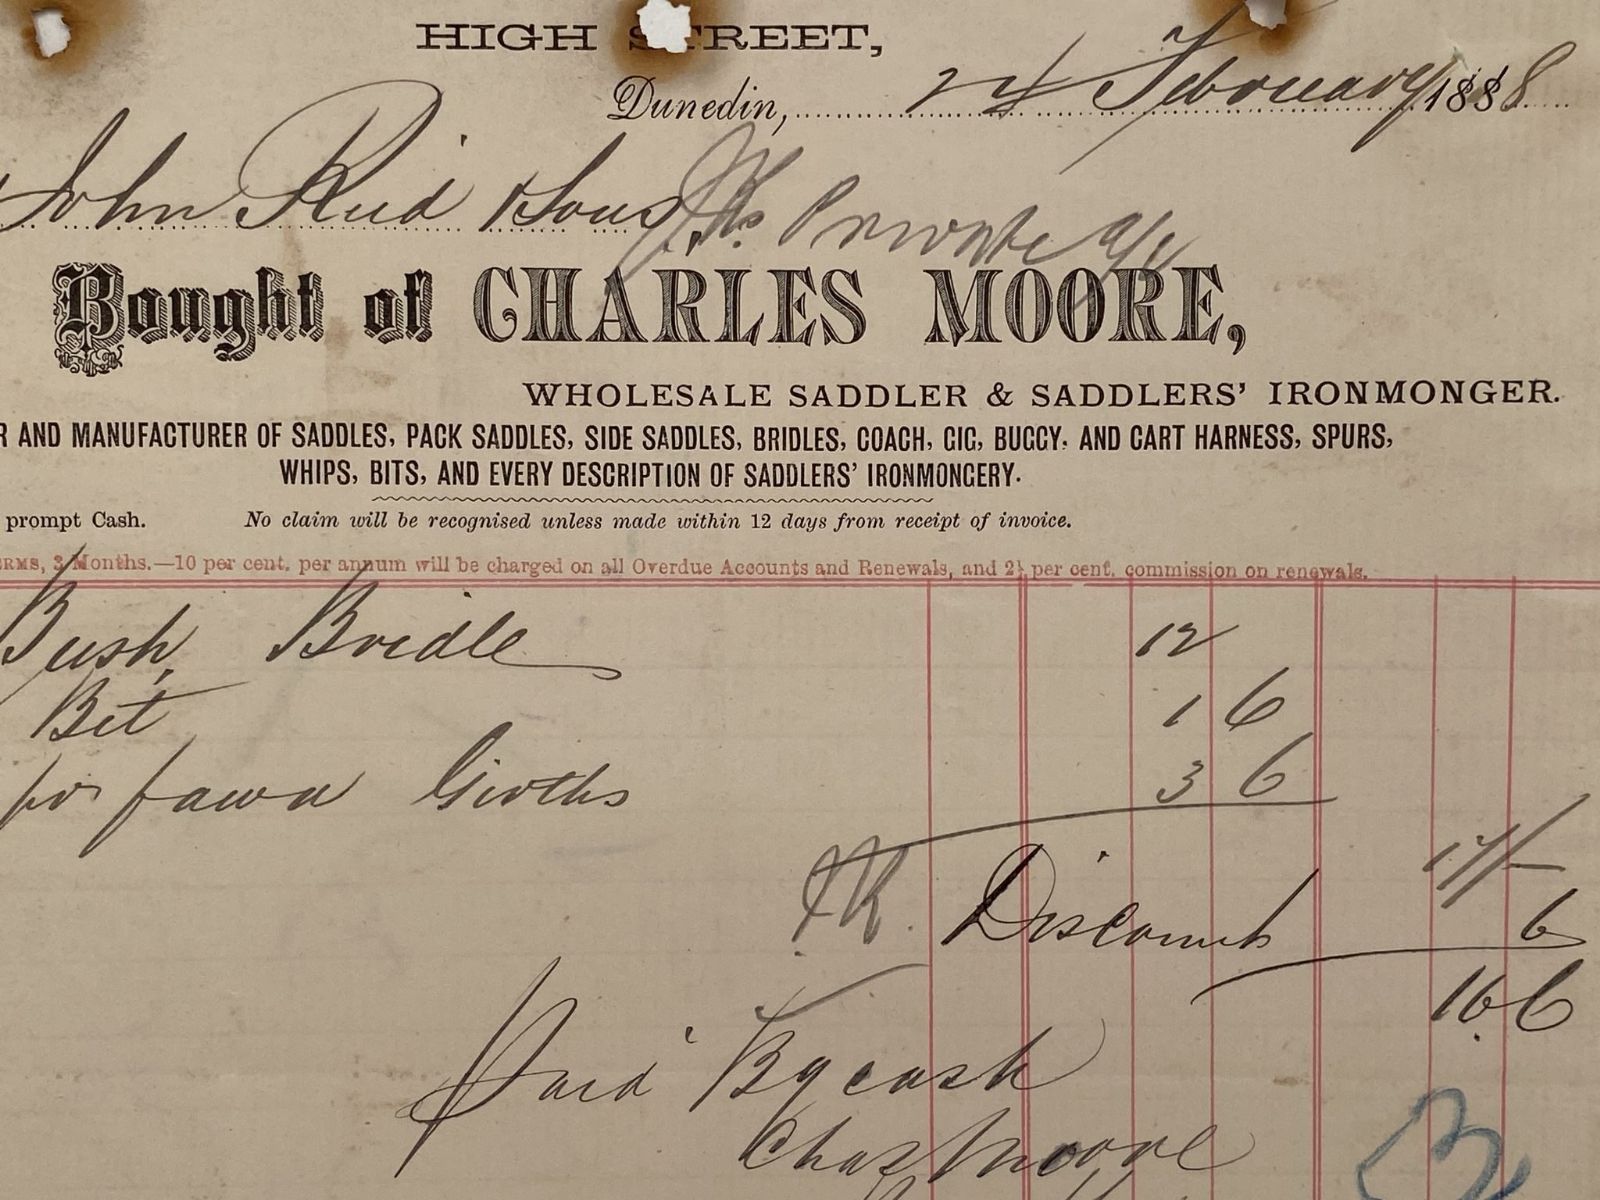 HIGH STREET,
Dunedin, 24 February 1888
John Reid & Sons J.R's Private a/c
Bought of CHARLES MOORE,
WHOLESALE SADDLER & SADDLERS' IRONMONGER.
R AND MANUFACTURER OF SADDLES, PACK SADDLES, SIDE SADDLES, BRIDLES, COACH, GIG, BUGGY. AND CART HARNESS, SPURS,
WHIPS, BITS, AND EVERY DESCRIPTION OF SADDLERS' IRONMONGERY.
prompt Cash. No claim will be recognised unless made within 12 days from receipt of invoice.
ERMS, 3 Months.—10 per cent. per annum will be charged on all Overdue Accounts and Renewals, and 2½ per cent. commission on renewals.
Bush Bridle 12
Bit 1 6
pr fawn Girths 3 6
17/-
JR. Discount 6
16.6
Paid By cash
Chas Moore